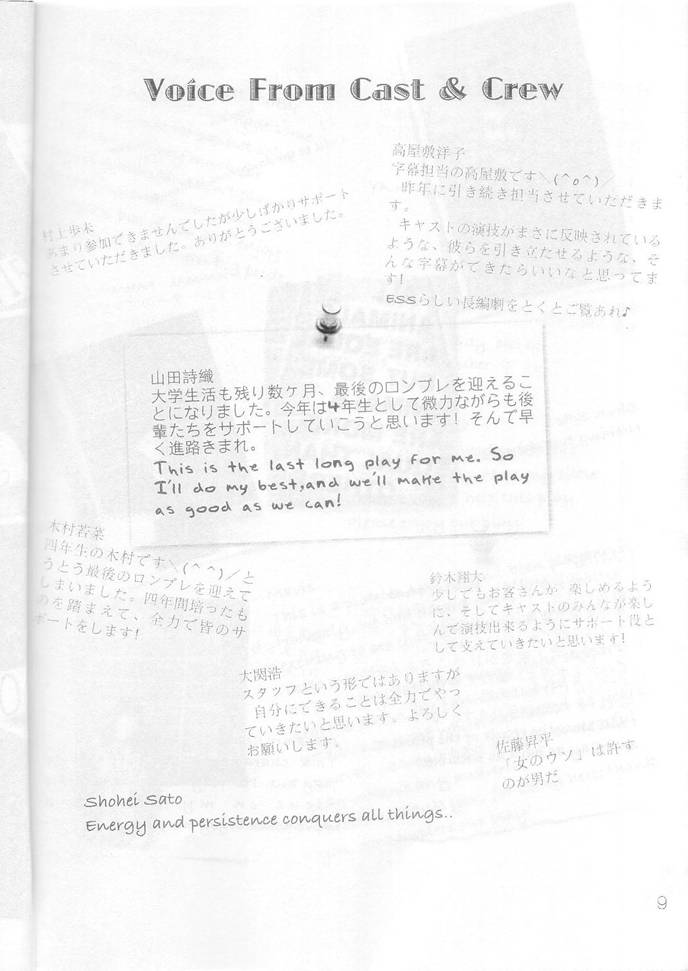 Voice From Cast & Crew
高屋敷洋子
字幕担当の高屋敷です＼(^o^)／
昨年に引き続き担当させていただきま
す。
キャストの演技がまさに反映されている
ような、彼らを引き立たせるような、そ
んな字幕ができたらいいなと思ってま
す!
ESSらしい長編劇をとくとご覧あれ♪
村上歩未
あまり参加できませんでしたが少しばかりサポート
させていただきました。ありがとうございました。
山田詩織
大学生活も残り数ヶ月、最後のロンプレを迎えるこ
とになりました。今年は4年生として微力ながらも後
輩たちをサポートしていこうと思います! そんで早
く進路きまれ。
This is the last long play for me. So
I'll do my best,and we'll make the play
as good as we can!
木村若菜
四年生の木村です＼(^^)／と
うとう最後のロンプレを迎えて
しまいました。四年間培ったも
のを踏まえて、全力で皆のサ
ポートをします!
鈴木翔大
少しでもお客さんが 楽しめるよう
に、そしてキャストのみんなが楽し
んで演技出来るようにサポート役と
して支えていきたいと思います!
大関浩
スタッフという形ではありますが
自分にできることは全力でやっ
ていきたいと思います。よろしく
お願いします。
佐藤昇平
「女のウソ」は許す
のが男だ
Shohei Sato
Energy and persistence conquers all things..
9